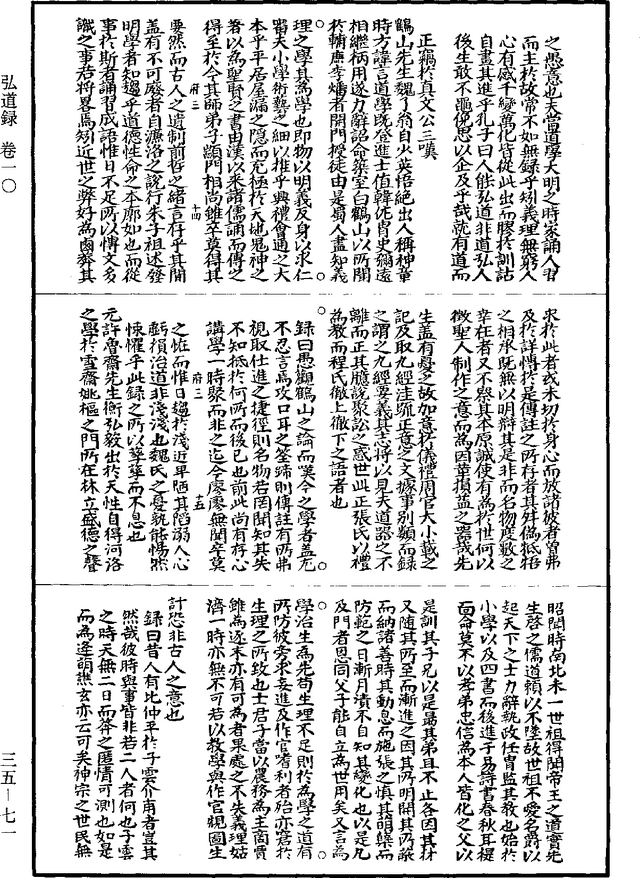 之愚意也夫當道學大明之時家誦人習
而主於故常不如無錄乎矧義理無窮人
心有感千變萬化皆從此出而膠於訓詁
自畫其進乎孔子曰人能弘道非道弘人
後生敢不黽俛思以企及乎哉就有道而
正竊於真文公三嘆
鶴山先生魏了翁自少英悟絕出人稱神童
時方諱言道學既登進士值韓侂胄史彌遠
相繼柄用遂力辭詔命築室白鶴山以所聞
於輔廣李燔者開門授徒由是蜀人盡知義
理之學其為學也即物以明義反身以求仁
審夫小學術藝之細以推乎典禮會通之大
本乎平居屋漏之隱而充極於天地鬼神之
府三 十四
著以為聖賢之書由漢以來諸儒誦而傳之
得至於今其師弟子顓門相尚雖卒莫得其
要然而古人之遺制前哲之緒言存乎其間
蓋有不可廢者自濂洛之說行朱子祖述發
明學者知趨乎道德性命之本廓如也而從
事於斯者誦習成語惟日不足所以慱文多
識之事若將畧焉矧近世之弊好為鹵莽其
求於此者或未切於身心而放諸彼者曾弗
及於詳慱於是傳註之所存者其舛偽牴牾
之相承既無以明辯其是非而名物度數之
幸在者又不察其本原誠使有為於世何以
徵聖人制作之意而為因革損益之器哉先
生蓋有憂之故加意於儀禮周官大小戴之
記及取九經注疏正義之文據事別類而錄
之謂之九經要義其志將以見夫道器之不
離而正其臆說聚訟之惑世此正張氏以禮
為教而程氏徹上徹下之語者也
錄曰愚觀鶴山之論而嘆今之學者蓋尤
不忍言焉攻口耳之筌蹄則傳註有所弗
視取仕進之捷徑則名物若罔聞知其失
不知抵於何所而後已也前此尚有存心
講學一時聚而非之迄今廖廖無聞卒莫
府三 十五
之恠而惟日趨於淺近卑陋其陷溺人心
虧損治道非淺淺也魏氏之憂孰能惕然
悚懼乎此錄之所以孳孳而不息也
元許魯齋先生衡弘毅出於天性自得河洛
之學於雪齋姚樞之門所在林立盛德之聲
昭聞時南北未一世祖得聞帝王之道實先
生啓之儒道賴以不墜故世祖不愛名爵以
起天下之士力辭執政任胄監其教也始於
小學以及四書而後進于易詩書春秋耳提
面命莫不以孝弟忠信為本人皆化之父以
是訓其子兄以是勗其弟且不止各因其材
又隨其所至而漸進之因其所明開其所蔽
而納諸善時其動息而施張之慎其萌糵而
防範之日漸月漬不自知其變化也以是凡
及門者恩同父子能自立為世用矣又言為
學治生為先苟生理不足則於為學之道有
所防彼旁求妄進及作官嗜利者殆亦窘於
生理之所致也士君子當以農務為主商賈
雖為逐末亦有可為者果處之不失義理姑
濟一時亦無不可若以教學與作官規圖生
計恐非古人之意也
錄曰昔人有比仲平於子雲介甫者豈其
然哉彼時與事皆非若二人者何也子雲
之時天無二日而莽之匿情可測也如是
而為逢萌譙玄亦云可矣神宗之世民無
弘道録 卷一〇
三五-七一